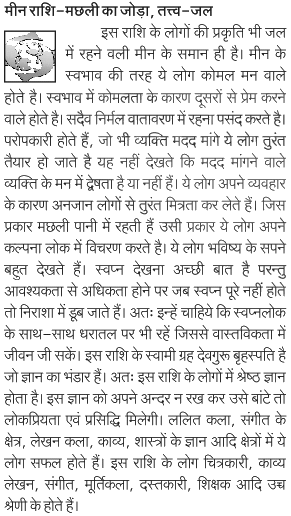 मीन राशि-मछली का जोड़ा, तत्त्व-जल
इस राशि के लोगों की प्रकृति भी जल
में रहने वली मीन के समान ही है। मीन के
स्वभाव की तरह ये लोग कोमल मन वाले
होते है। स्वभाव में कोमलता के कारण दूसरों से प्रेम करने
वाले होते है। सदैव निर्मल वातावरण में रहना पसंद करते है।
परोपकारी होते हैं, जो भी व्यक्ति मदद मांगे ये लोग तुरंत
तैयार हो जाते है यह नहीं देखते कि मदद मांगने वाले
व्यक्ति के मन में द्वेषता है या नहीं हैं। ये लोग अपने व्यवहार
के कारण अनजान लोगों से तुरंत मित्रता कर लेते हैं। जिस
प्रकार मछली पानी में रहती हैं उसी प्रकार ये लोग अपने
कल्पना लोक में विचरण करते है। ये लोग भविष्य के सपने
बहुत देखते हैं। स्वप्न देखना अच्छी बात है परन्तु
आवश्यकता से अधिकता होने पर जब स्वप्न पूरे नहीं होते
तो निराशा में डूब जाते हैं। अतः इन्हें चाहिये कि स्वप्नलोक
के साथ-साथ धरातल पर भी रहें जिससे वास्तविकता में
जीवन जी सकें। इस राशि के स्वामी ग्रह देवगुरू बृहस्पति है
जो ज्ञान का भंडार हैं। अतः इस राशि के लोगों में श्रेष्ठ ज्ञान
होता है। इस ज्ञान को अपने अन्दर न रख कर उसे बांटे तो
लोकप्रियता एवं प्रसिद्धि मिलेगी। ललित कला, संगीत के
क्षेत्र, लेखन कला, काव्य, शास्त्रों के ज्ञान आदि क्षेत्रों में ये
लोग सफल होते हैं। इस राशि के लोग चित्रकारी, काव्य
लेखन, संगीत, मूर्तिकला, दस्तकारी, शिक्षक आदि उच्च
श्रेणी के होते हैं।